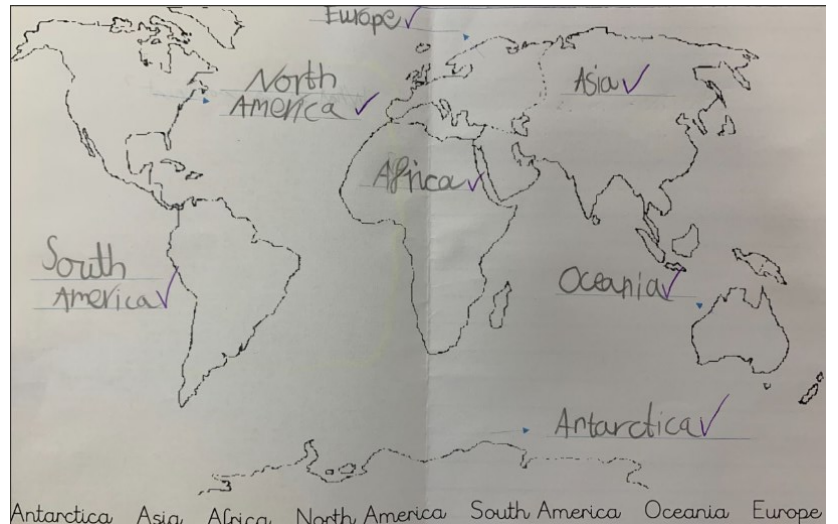 Europe
North
America
Asia
Africa
South
America
Oceania
Antarctica
Antarctica Asia Africa North America South America Oceania Europe